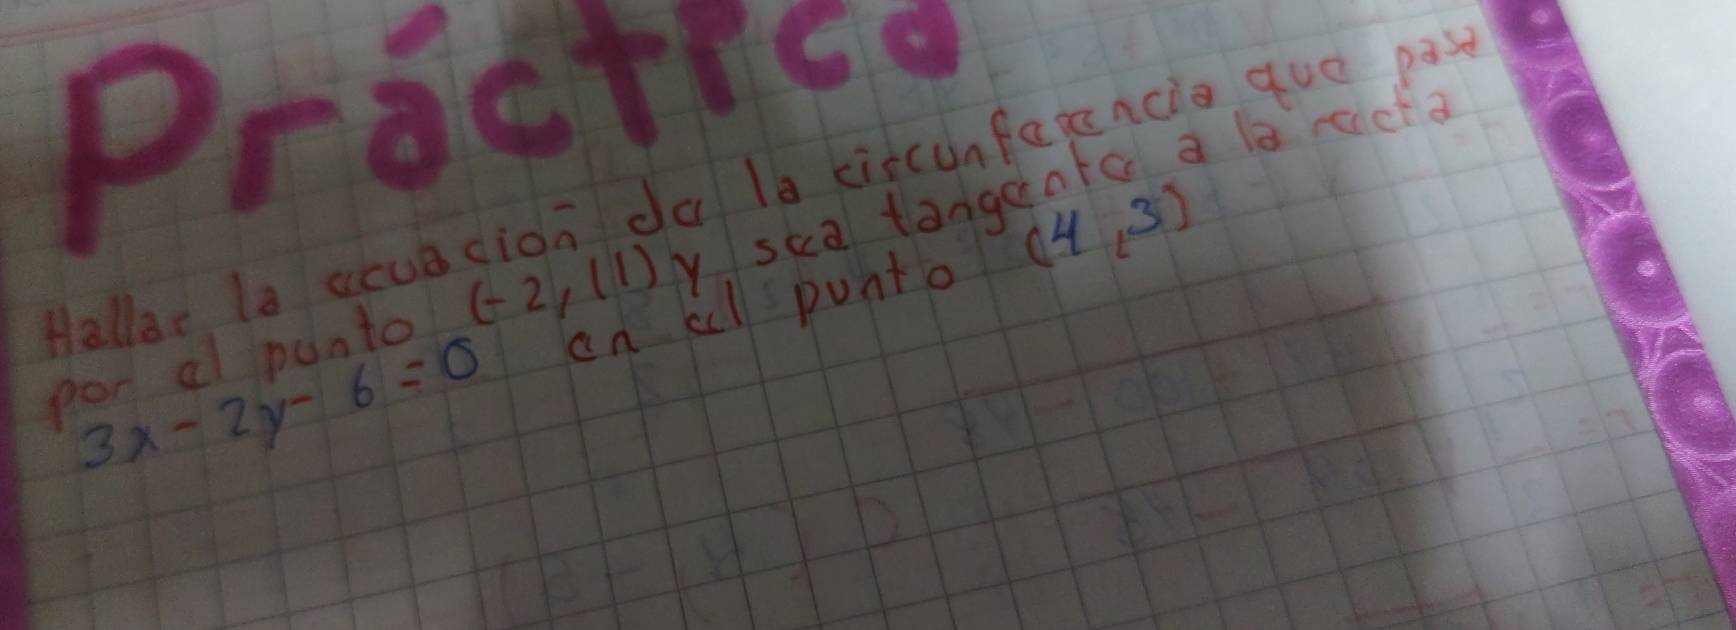 Práctica
Hallar la ecuación de la circunferencia que pasa
por el punto (-2, 11) y sea tangente a la recta
3x - 2y - 6 = 0 en el punto (4, 3)